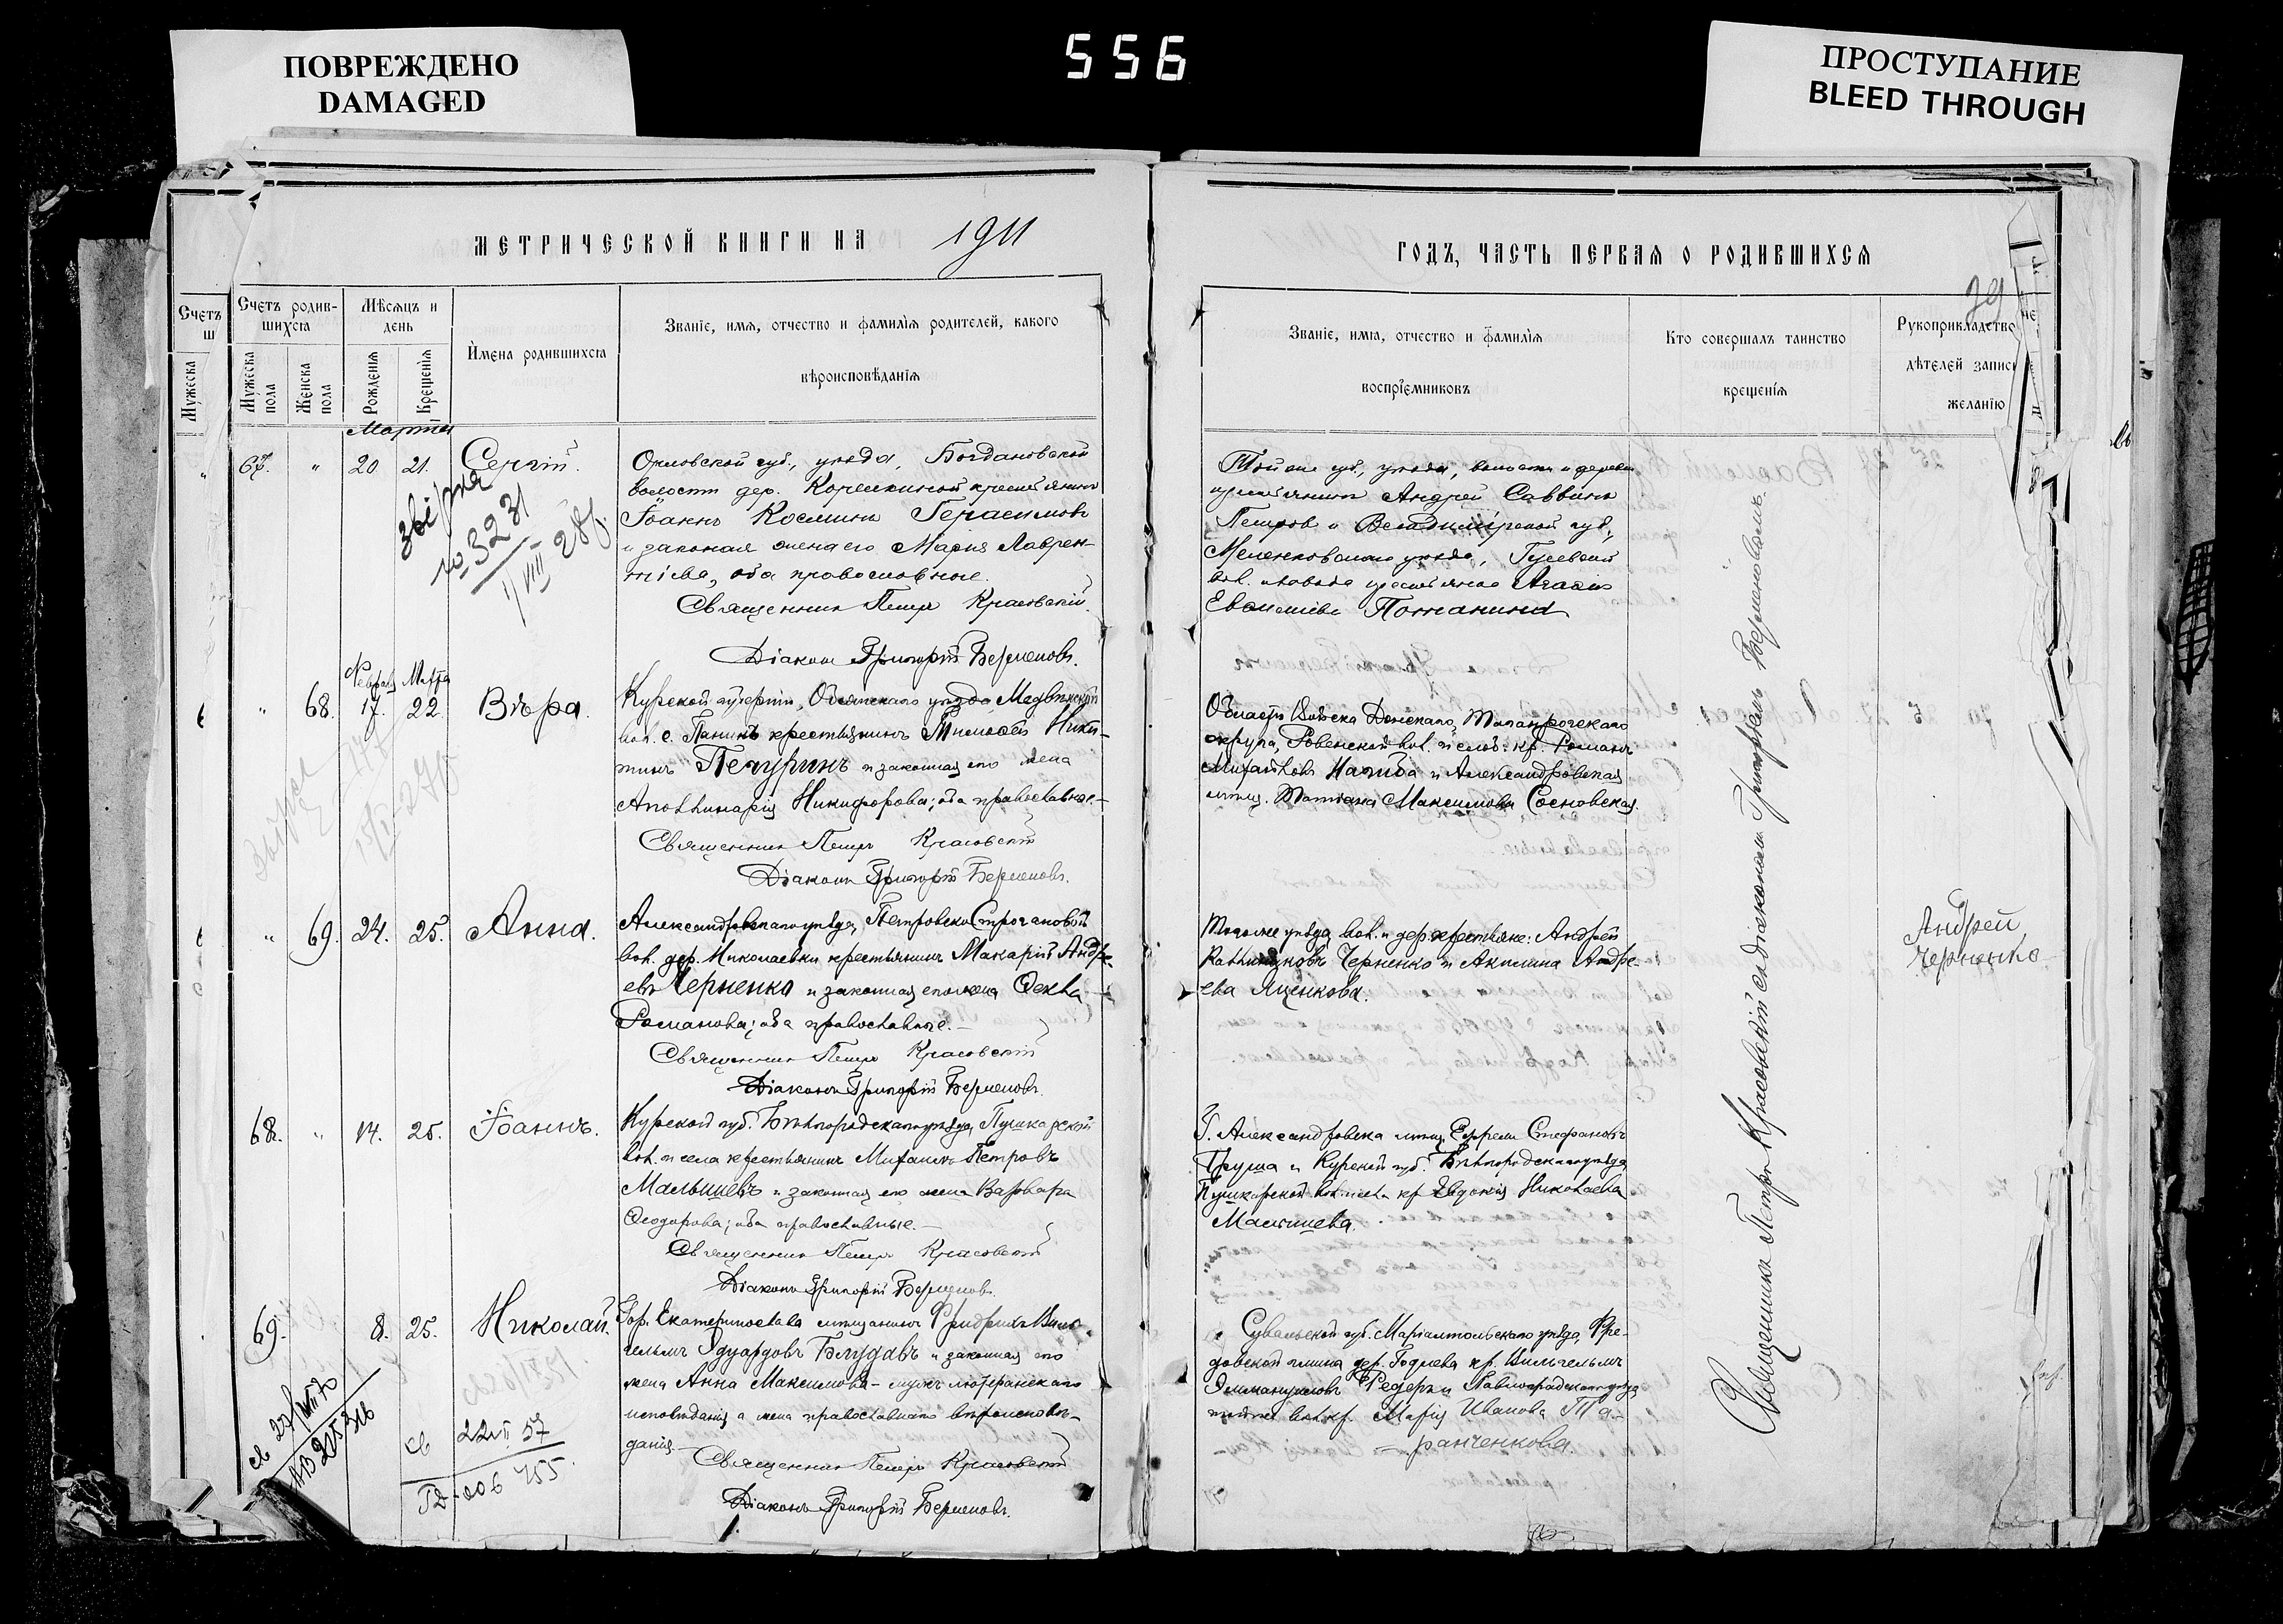 ПОВРЕЖДЕНО
DAMAGED
556
ПРОСТУПАНИЕ
BLEED THROUGH
МЕТРИЧЕСКОЙ КНИГИ НА 1911
ГОДЪ, ЧАСТЬ ПЕРВАЯ О РОДИВШИХСЯ
39
Счетъ
Мужеска
Счетъ родив-
шихся
Мужеска пола
Женска пола
Мѣсяцъ и
день
Рожденія
Крещенія
Имена родившихся
Званіе, имя, отчество и фамилія родителей, какого
вѣроисповѣданія
Званіе, имя, отчество и фамилія
воспріемниковъ
Кто совершалъ таинство
крещенія
Рукоприкладство
дѣтелей запис
желанію
Марта
67. " 20. 21. Сергій.
№ 3231
Орловской губ., уѣзда, Богдановской
волости дер. Корешкиной крестьянинъ
Іоаннъ Косминъ Герасимовъ
и законная жена его Марія Лаврен-
тіева, оба православные.
Священникъ Петръ Красовскій
Діаконъ Григорій
Той же губ., уѣзда, волости и деревни
крестьянинъ Андрей Саввинъ
Петровъ и Владимірской губ.,
Меленковскаго уѣзда, Гусевской
вол. крестьянка Агафія
Потанина
Февраля Марта
" 68. 17. 22. Вѣра.
Курской губерніи, Обоянскаго уѣзда Медвѣнской
вол. с. Панинъ крестьянинъ Тимофей Ники-
тинъ Печуринъ и законная его жена
Аполлинарія Никифорова; оба православные.
Священникъ Петръ Красовскій
Діаконъ Григорій
Области Войска Донскаго, Таганрогскаго
округа, Ровенской вол. и слоб. кр. Романъ
Михайловъ и Александровская
мѣщ. Татіана Максимова Сосновская.
" 69. 24. 25. Анна.
Александровскаго уѣзда, Петровско
вол. дер. Николаевки крестьянинъ Макарій Андре-
евъ Черненко и законная его жена Ѳекла
Романова; оба православные.
Священникъ Петръ Красовскій
Діаконъ Григорій
Того же уѣзда вол. и дер. крестьяне: Андрей
Каллиниковъ Черненко и Акилина Андре-
ева Яценкова.
Андрей
Черненко
68. " 14. 25. Іоаннъ.
Курской губ. Бѣлгородскаго уѣзда, Пушкарской
вол. и села крестьянинъ Михаилъ Петровъ
Малышевъ и законная его жена Варвара
Ѳеодорова; оба православные.
Священникъ Петръ Красовскій
Діаконъ Григорій
Г. Александровска мѣщ. Ефремъ Стефановъ
Груша и Курской губ. Бѣлгородскаго уѣзда
Пушкарской вол. и села кр. Евдокія Николаева
Малышева.
69. 8. 25. Николай.
Гор. Екатеринослава мѣщанинъ Фридрихъ Виль-
гельмъ Эдуардовъ и законная его
жена Анна Максимова - мужъ лютеранскаго
исповѣданія а жена православнаго вѣроисповѣ-
данія
Священникъ Петръ Красовскій
Діаконъ Григорій
Сувалкской губ. Маріампольскаго уѣзда, Фре-
довской гмины дер. Годлева кр. Вильгельмъ
Эммануиловъ Редеръ и Павлоградскаго уѣзда
вол. кр. Марія Иванова Та-
ранченкова.
Священникъ Петръ Красовскій съ діакономъ Григоріемъ